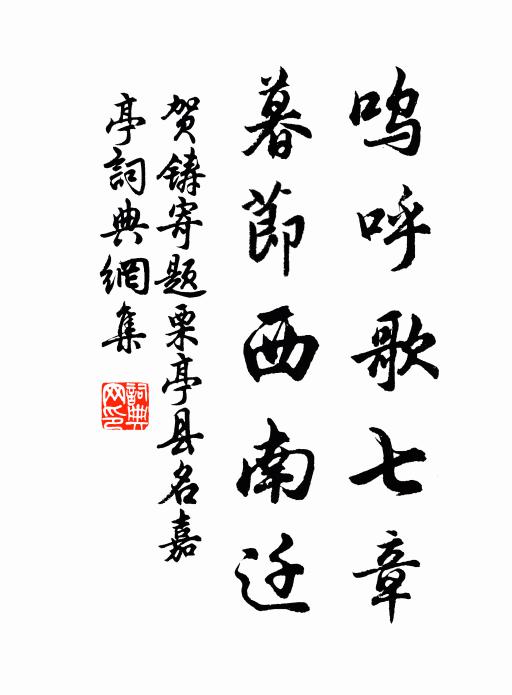 呜呼歌七章
暮節西南迁
贺铸寄题栗亭县名嘉
亭詞典網集
詞典
网印